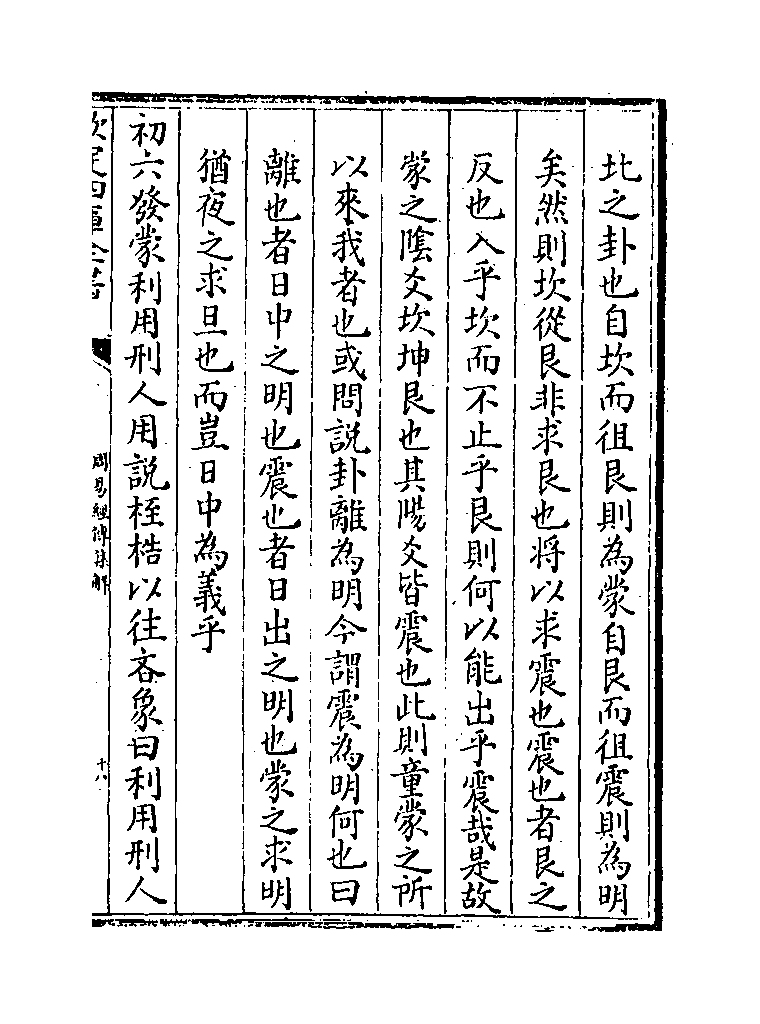 此之卦也自坎而徂艮則為蒙自艮而徂震則為明
矣然則坎從艮非求艮也将以求震也震也者艮之
反也入乎坎而不止乎艮則何以能出乎震哉是故
蒙之隂爻坎坤艮也其陽爻皆震也此則童蒙之所
以來我者也或問説卦離為明今謂震為明何也曰
離也者日中之明也震也者日出之明也蒙之求明
猶夜之求旦也而豈日中為義乎
初六發蒙利用刑人用説桎梏以往吝象曰利用刑人
欽定四庫全書
周易經傳集解
十八